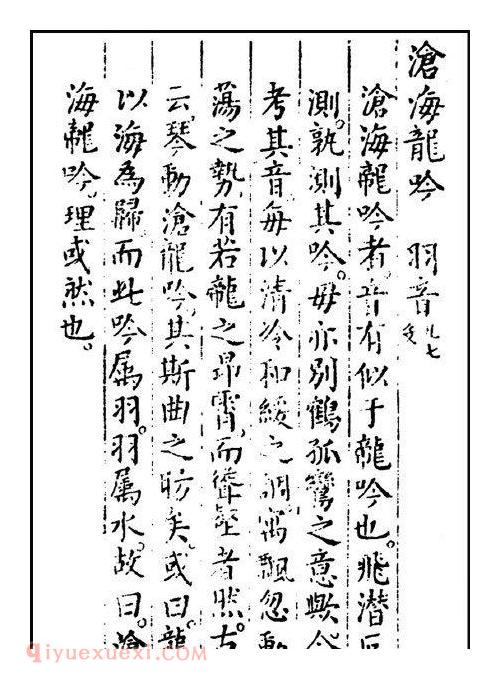 滄海龍吟　羽音 凡七
滄海龍吟者。音有似于龍吟也。飛潛叵
測。孰測其吟。毋亦別鶴孤鸞之意歟。今
考其音。每以清冷和緩之調。寓飄忽動
蕩之勢。有若龍之昂霄。而聳壑者然。古
云。琴動滄龍吟。其斯曲之昉矣。或曰。龍
以海為歸。而此吟屬羽。羽屬水。故曰。滄
海龍吟。理或然也。
qiyuexuexi.COM